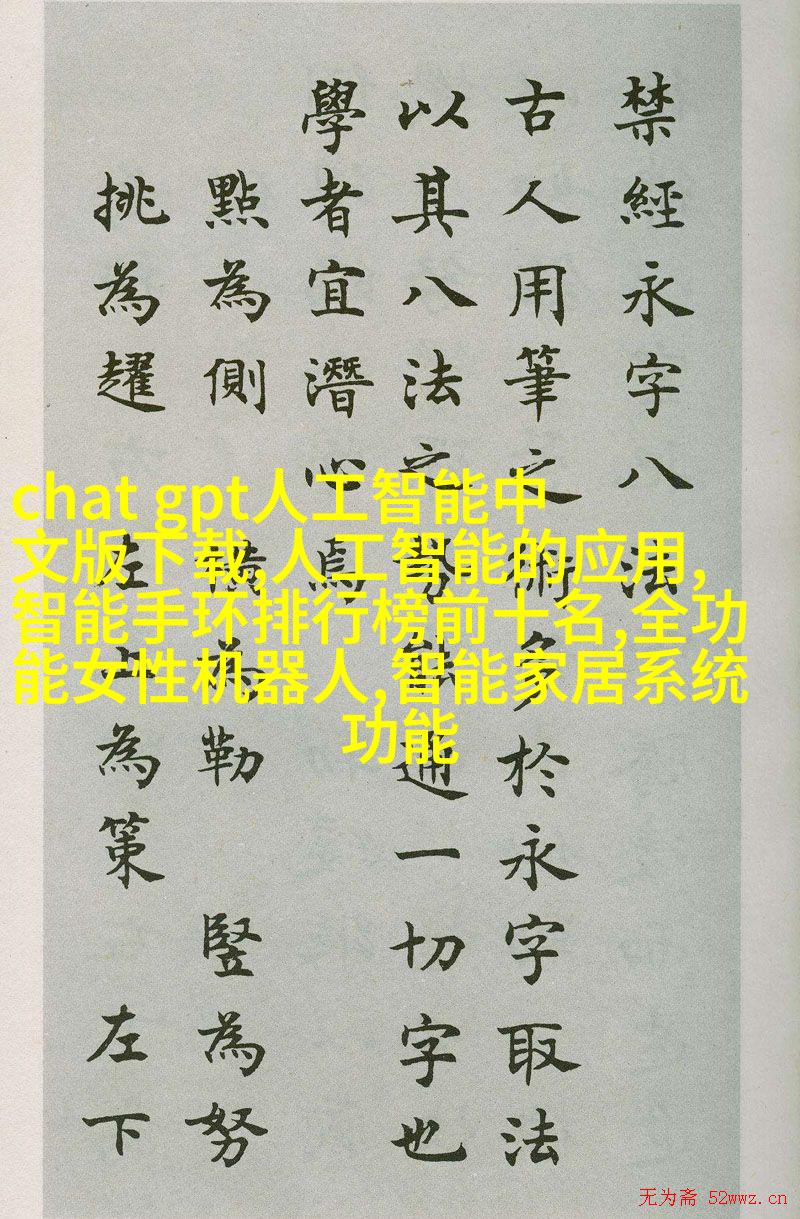 禁經永字八法
古人用筆之術多於永字取法
以其八法之勢能通一切字也
學者宜潛心焉
點為側 橫為勒 豎為努
挑為趯 左上為策 左下
chat gpt人工智能中
文版下载,人工智能的应用,
智能手环排行榜前十名,全功
能女性机器人,智能家居系统
功能
无为斋 52wwz.cn